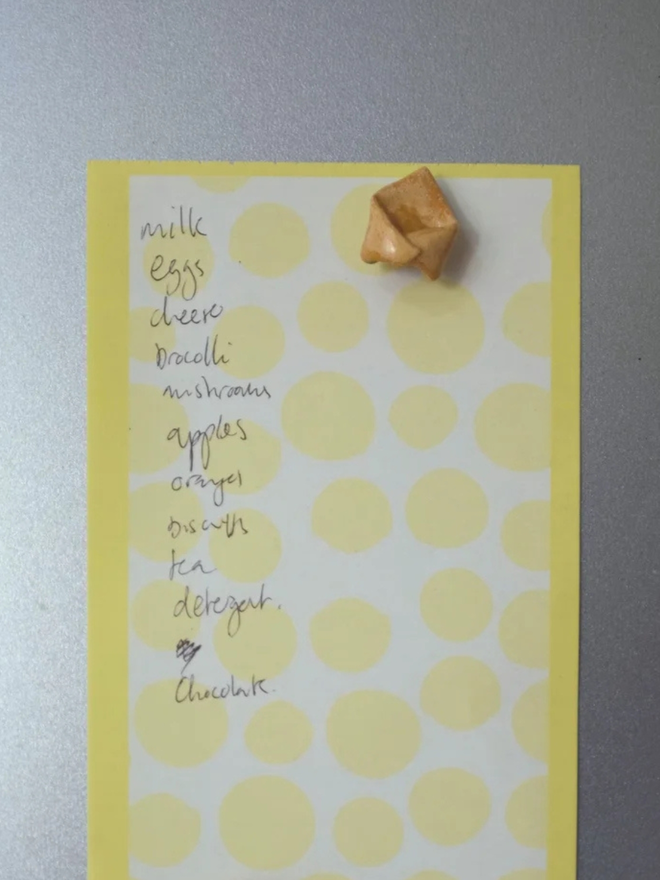 milk
eggs
cheese
brocolli
mushrooms
apples
oranges
biscuits
tea
detergent.
Chocolate.